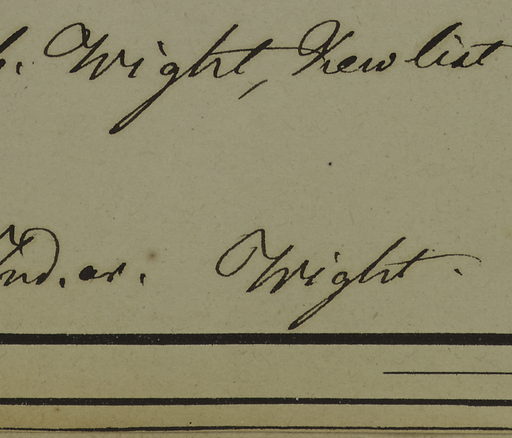 Wight, Kew list
Ind. or. Wight.